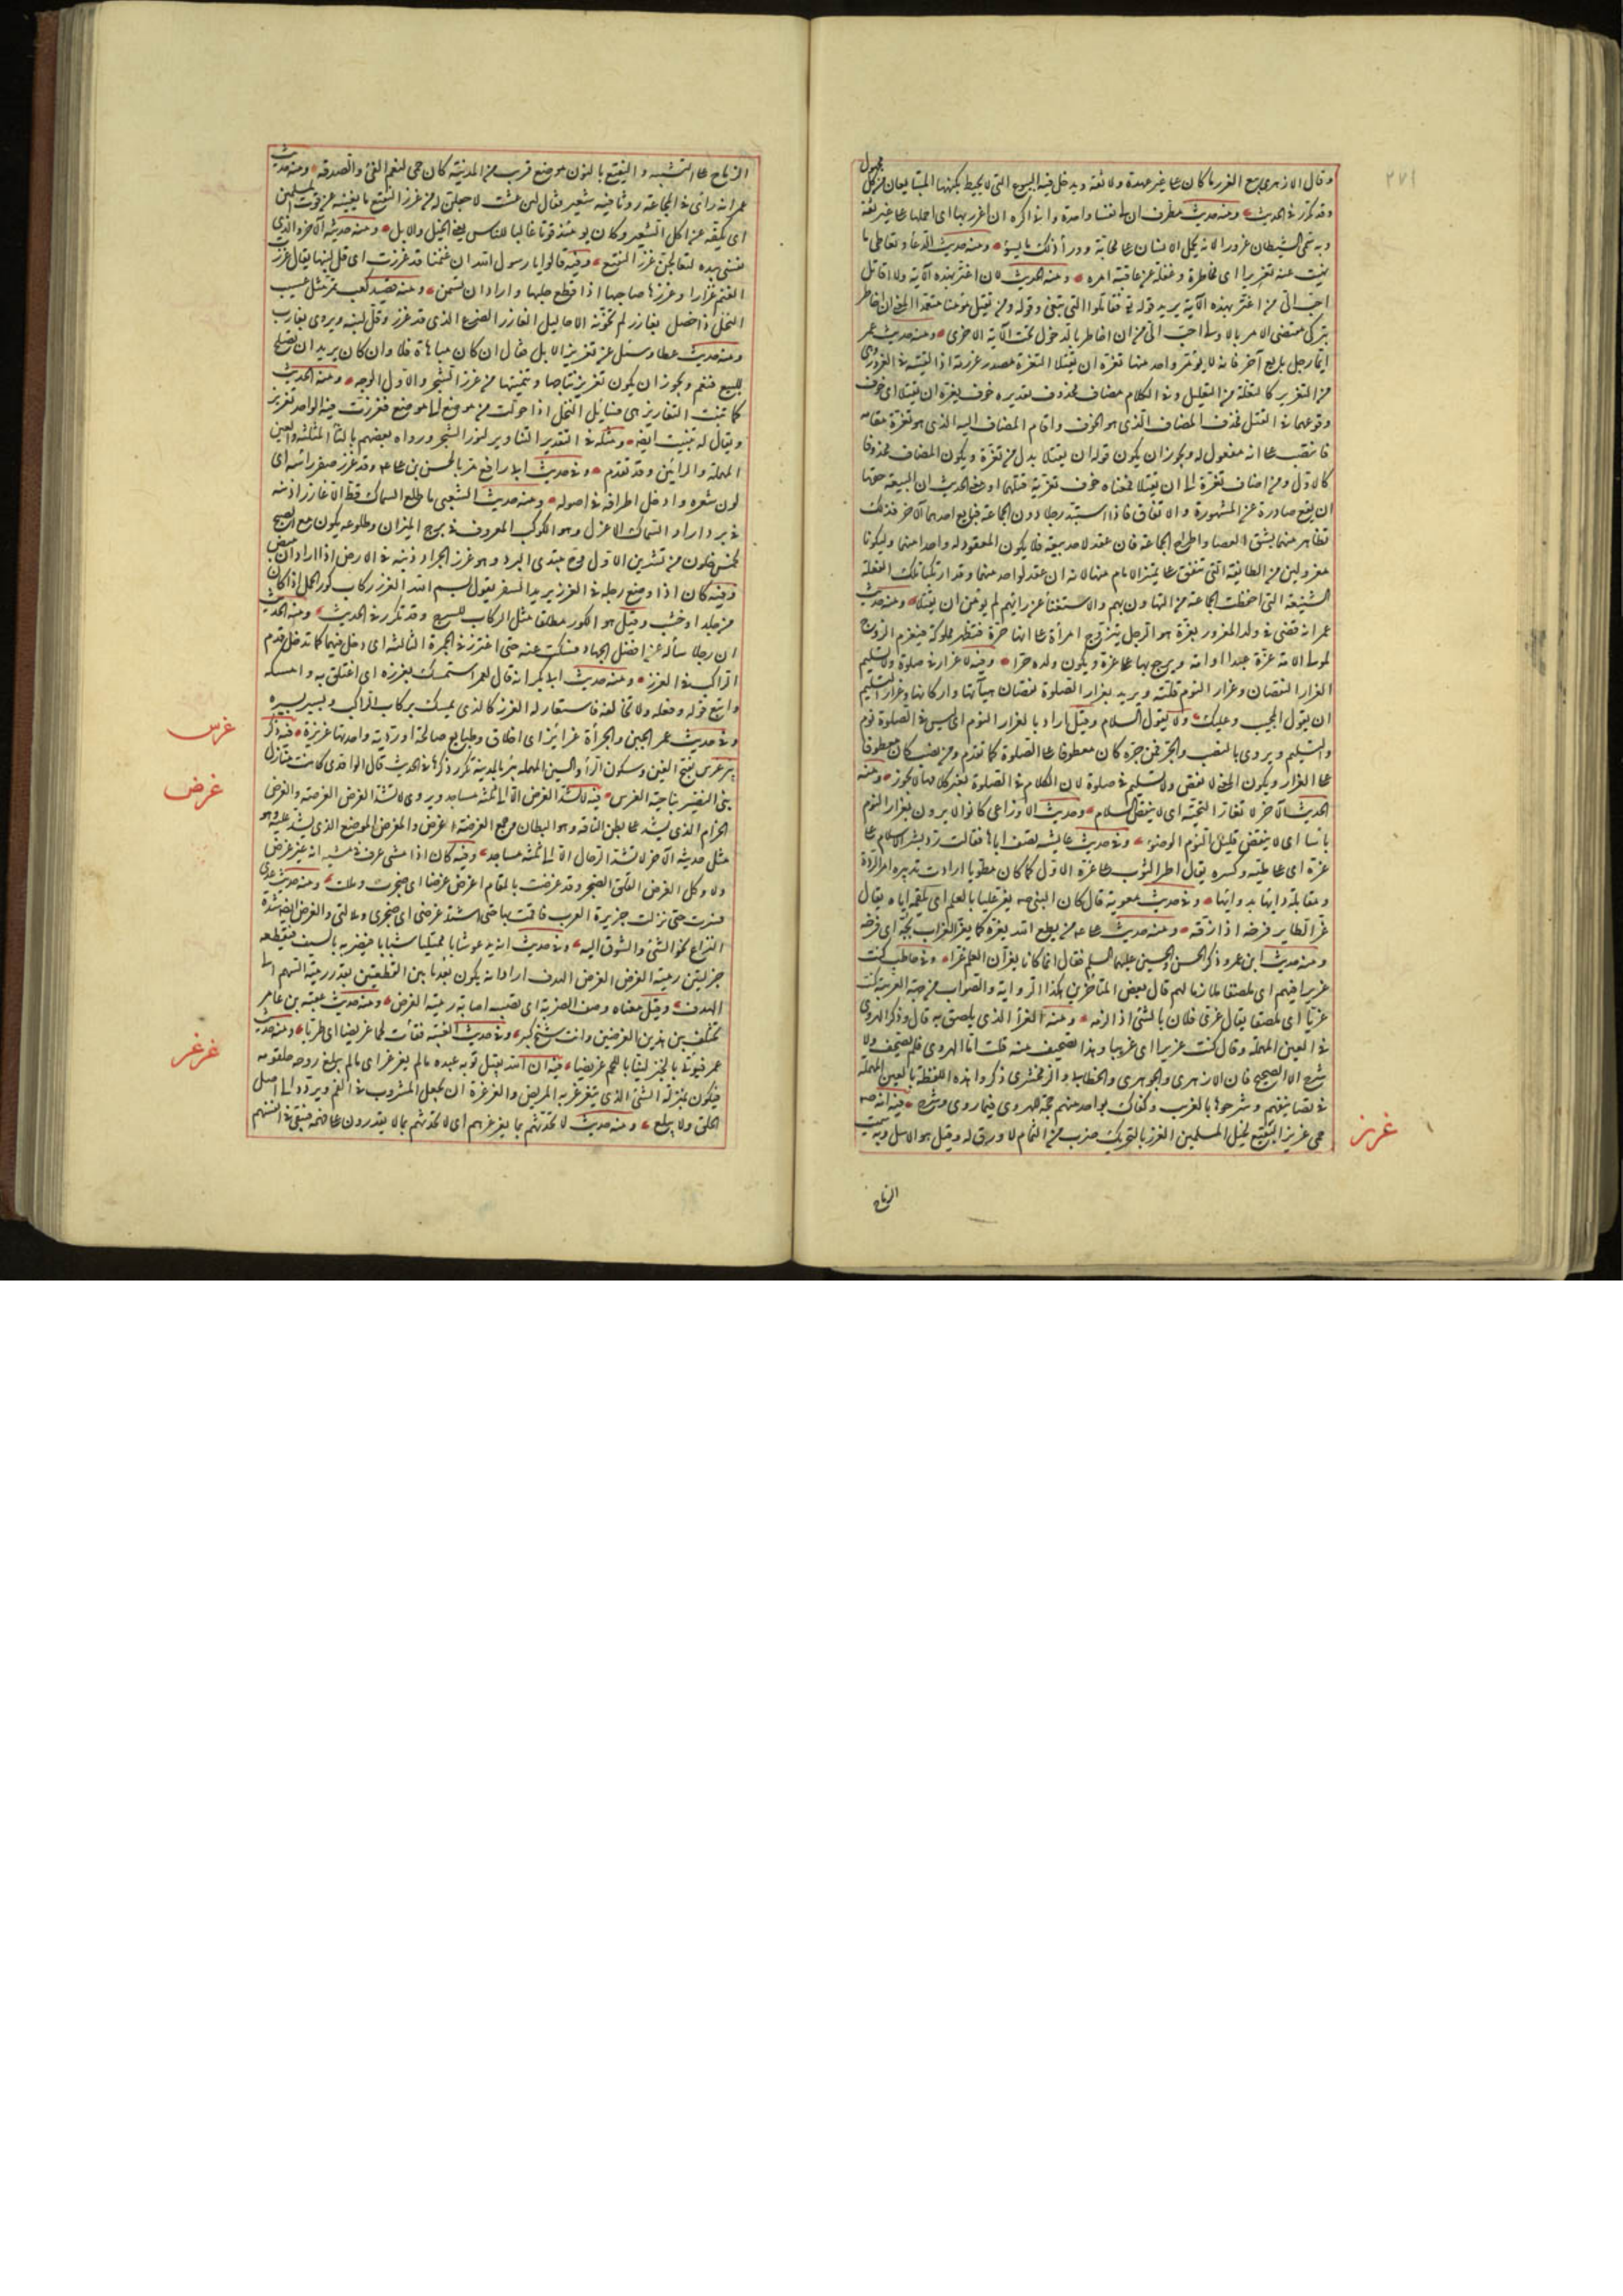 ٢٧١
وقال الازهري بيع الغرر ما كان على غير عهدة ولا ثقة ويدخل فيه البيوع التي لا يحيط بكنهها المتبايعان من كل مجهول
وقد تكرر في الحديث ومنه حديث مطرف ان لي نفسا واحدة واني اكره ان اغرر بها اي احملها على غير ثقة
وبه سمي الشيطان غرورا لانه يحمل الانسان على محابه ووراء ذلك ما يسوء ومنه حديث الدعاء وتعاطي ما
نهيت عنه تغريرا اي مخاطرة وغفلة عن عاقبة امره ومنه الحديث لان اغتر بهذه الآية ولا اقاتل
احب الي من ان اغتر بهذه الآية يريد قوله تع فقاتلوا التي تبغي وقوله ومن يقتل مؤمنا متعمدا المعنى ان اخاطر
بتركي مقتضى الامر بالاولى احب الي من ان اخاطر بالدخول تحت الآية الاخرى ومنه حديث عمر
ايما رجل بايع آخر فانه لا يؤمر واحد منها تغرة ان يقتلا التغرة مصدر غررته اذا القيته في الغرر وهي
من التغرير كالتعلة من التعليل وفي الكلام مضاف محذوف تقديره خوف تغرة ان يقتلا اي خوف
وقوعهما في القتل فحذف المضاف الذي هو الخوف واقام المضاف اليه الذي هو تغرة مقامه
فانتصب على انه مفعول له ويجوز ان يكون قوله ان يقتلا بدل من تغرة ويكون المضاف محذوفا
كالاول ومن اضاف تغرة الى ان يقتلا فمعناه خوف تغرته قتلهما ومعنى الحديث ان البيعة حقها
ان يقع صادرة عن المشهورة والاتفاق فاذا استبد رجلان دون الجماعة فبايع احدهما الآخر فذلك
تظاهر منهما بشق العصا واطراح الجماعة فان عقد لاحد بيعة فلا يكون المعقود له واحدا منهما وليكونا
معزولين من الطائفة التي تتفق على تمييز الامام منها لانه ان عقد لواحد منهما وقد ارتكبا تلك الفعلة
الشنيعة التي احفظت الجماعة من التهاون بهم والاستغناء عن رايهم لم يؤمن ان يقتلا ومنه حديث
عمر انه قضى في ولد المغرور بغرة هو الرجل يتزوج امرأة على انها حرة فتظهر مملوكة فيغرم الزوج
لمولى الامة غرة عبدا او امة ويرجع بها على من غره ويكون ولده حرا وفيه لا غرار في صلوة ولا تسليم
الغرار النقصان وغرار النوم قلته ويريد بغرار الصلوة نقصان هيآتها واركانها وغرار التسليم
ان يقول المجيب وعليك ولا يقول السلام وقيل اراد بالغرار النوم اي ليس في الصلوة نوم
والتسليم ويروى بالنصب والجر فمن جره كان معطوفا على الصلوة كما تقدم ومن نصب كان معطوفا
على الغرار ويكون المعنى لا نقص ولا تسليم في صلوة لان الكلام في الصلوة لغير كلامها لا يجوز ومنه
الحديث الآخر لا تغار التحية اي لا ينقص السلام وحديث الاوزاعي كانوا لا يرون بغرار النوم
باسا اي لا ينقض قليل النوم الوضوء وفي حديث عايشة تصف اباها فقالت رد نشر الاسلام على
غره اي على طيه وكسره يقال اطو الثوب على غره الاول كما كان مطويا ارادت تدبيره امر الردة
ومقابلة دائها بدوائها وفي حديث معوية قال كان النبي صه يغر عليا بالعلم اي يلقمه اياه يقال
غر الطاير فرخه اذا زقه ومنه حديث علي من يطع الله يغره كما يغر الغراب بجه اي فرخه
ومنه حديث ابن عمر وذكر الحسن والحسين عليهما السلم فقال انما كانا يغران العلم غرا وفي حاطب كنت
غريرا فيهم اي ملصقا ملازما لهم قال بعض المتأخرين هكذا الرواية والصواب من جهة العربية كنت
غريا اي ملصقا يقال غري فلان بالشئ اذا لزمه ومنه الغراء الذي يلصق به قال وذكره الهروي
في العين المهملة وقال كنت عريرا اي غريبا وهذا تصحيف منه قلت اما الهروي فلم يصحف ولا
شرح الا الصحيح فان الازهري والجوهري والخطابي والزمخشري ذكروا هذه اللفظة بالعين المهملة
في تصانيفهم وشرحوها بالغريب وكفاك بواحد منهم حجة للهروي فيما روى وشرح فيه انه صه
حمى غرز النقيع لخيل المسلمين الغرز بالتحريك ضرب من الثمام لا ورق له وقيل هو الاسل وبه سميت
غرز
الرماح
الرماح على التشبيه والنقيع بالنون موضع قريب من المدينة كان حمى لنعم الفئ والصدقة ومنه حديث
عمر انه رائ في المجاعة روثا فيه شعير فقال لئن عشت لاجعلن له من غرز النقيع ما يغنيه عن قوت المسلمين
اي يكفه عن اكل الشعير وكان يومئذ قوتا غالبا للناس يعني الخيل والابل ومنه حديثه الآخر والذي
نفسي بيده لتعالجن غرز النقيع وفيه قالوا يا رسول الله ان غنمنا قد غرزت اي قل لبنها يقال غرزت
الغنم غرازا وغرزها صاحبها اذا قطع حلبها واراد ان تسمن ومنه قصيد كعب تمر مثل عسيب
النخل ذا خصل بغارز لم تخونه الاحاليل الغارز الضرع الذي قد غرز وقل لبنه ويروى بغارب
ومنه حديث عطا وسئل عن تغريز الابل فقال ان كان مباهاة فلا وان كان يريد ان تصلح
للبيع فنعم ويجوز ان يكون تغريزها نتاجها وتنميتها من غرز الشجر والاول الوجه ومنه الحديث
كما تنبت التغاريز هي فسائل النخل اذا حولت من موضع الى موضع فغرزت فيه الواحد تغريز
ويقال له تنبيت ايضا ومثله في التقدير التناوير لنور الشجر ورواه بعضهم بالثاء المثلثة والعين
المهملة والراءين وقد تقدم وفي حديث ابي رافع مر بالحسن بن علي وقد غرز ضفر راسه اي
لوى شعره وادخل اطرافه في اصوله ومنه حديث الشعبي ما طلع السماك قط الا غارزا ذنبه
في برد اراد السماك الاعزل وهو الكوكب المعروف في برج الميزان وطلوعه يكون مع الصبح
لخمس تخلون من تشرين الاول وح يبتدئ البرد وهو من غرز الجراد ذنبه في الارض اذا اراد ان يبيض
وفيه كان اذا وضع رجله في الغرز يريد السفر يقول بسم الله الغرز ركاب كور الجمل اذا كان
من جلد او خشب وقيل هو الكور مطلقا مثل الركاب للسرج وقد تكرر في الحديث ومنه الحديث
ان رجلا سأله عن افضل الجهاد فسكت عنه حتى اغترز في الجمرة الثالثة اي دخل فيها كما تدخل قدم
الراكب في الغرز ومنه حديث ابي بكر انه قال لعمر استمسك بغرزه اي اعتلق به وامسكه
واتبع قوله وفعله ولا تخالفه فاستعار له الغرز كالذي يمسك بركاب الراكب ويسير بسيره
وفي حديث عمر الجبن والجرأة غرائز اي اخلاق وطبايع صالحة او ردية واحدتها غريزة فيه ذكر
غرس
بئر غرس بفتح الغين وسكون الراء والسين المهملة بئر بالمدينة تكرر ذكرها في الحديث قال الواقدي كانت منازل
بني النضير بناحية الغرس فيه لا تشد الغرض الا الى ثلثة مساجد ويروى لا تشد الغرض الغرضة والغرض
غرض
الحزام الذي يشد على بطن الناقة وهو البطان وجمع الغرضة اغرض والمغرض الموضع الذي يشد عليه وهو
مثل حديثه الآخر لا تشد الرحال الا الى ثلثة مساجد وفيه كان اذا مشى عرف في مشيه انه غير غرض
ولا وكل الغرض القلق الضجر وقد غرضت بالمقام اغرض غرضا اي ضجرت ومللت ومنه حديث عدي
فسرت حتى نزلت جزيرة العرب فاقمت بها حتى اشتد غرضي اي ضجري وملالتي والغرض ايضا شدة
النزاع نحو الشئ والشوق اليه وفي حديث انه يدعو شابا ممتليا شبابا فيضربه بالسيف فيقطعه
جزلتين رمية الغرض الغرض الهدف اراد انه يكون بعد ما بين القطعتين بقدر رمية السهم الى
الهدف وقيل معناه وصف الضربة اي تصيبه اصابة رمية الغرض ومنه حديث عقبة بن عامر
تختلف بين هذين الغرضين وانت شيخ كبير وفي حديث الغيبة فقأت لحما غريضا اي طريا ومنه حديث
عمر فيؤتى بالخبز لينا باللحم غريضا فيه ان الله يقبل توبة عبده ما لم يغرغر اي ما لم يبلغ روحه حلقومه
غرغر
فيكون بمنزلة الشئ الذي يتغرغر به المريض والغرغرة ان يجعل المشروب في الفم ويردد الى اصل
الحلق ولا يبلع ومنه حديث لا تحدثهم بما يغرغرهم اي لا تحدثهم بما لا يقدرون على فهمه فيبقى في انفسهم